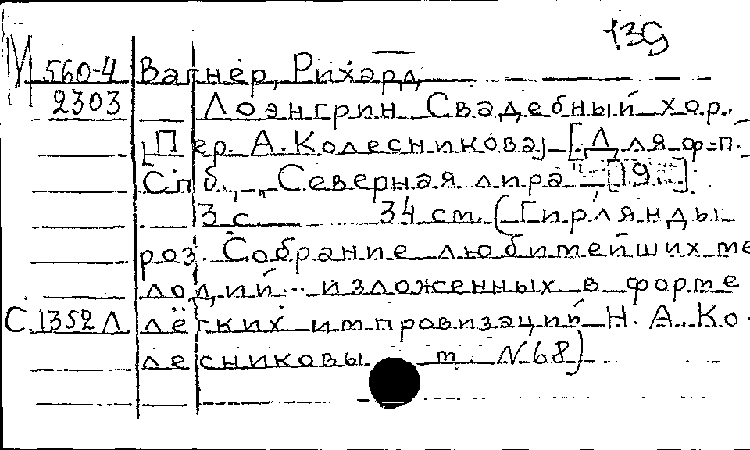 139
М 560-4 Вагнер, Рихард
2303 Лоэнгрин. Свадебный хор.
[Пер. А. Колесникова] [Для ф-п.
Спб., „Северная лира" [19 ]
3 с. 34 см. (Гирлянды
роз. Собрание любимейших ме
лодий... изложенных в форме
С.1352 Л лёгких импровизаций Н. А. Ко
лесниковы т. N68)